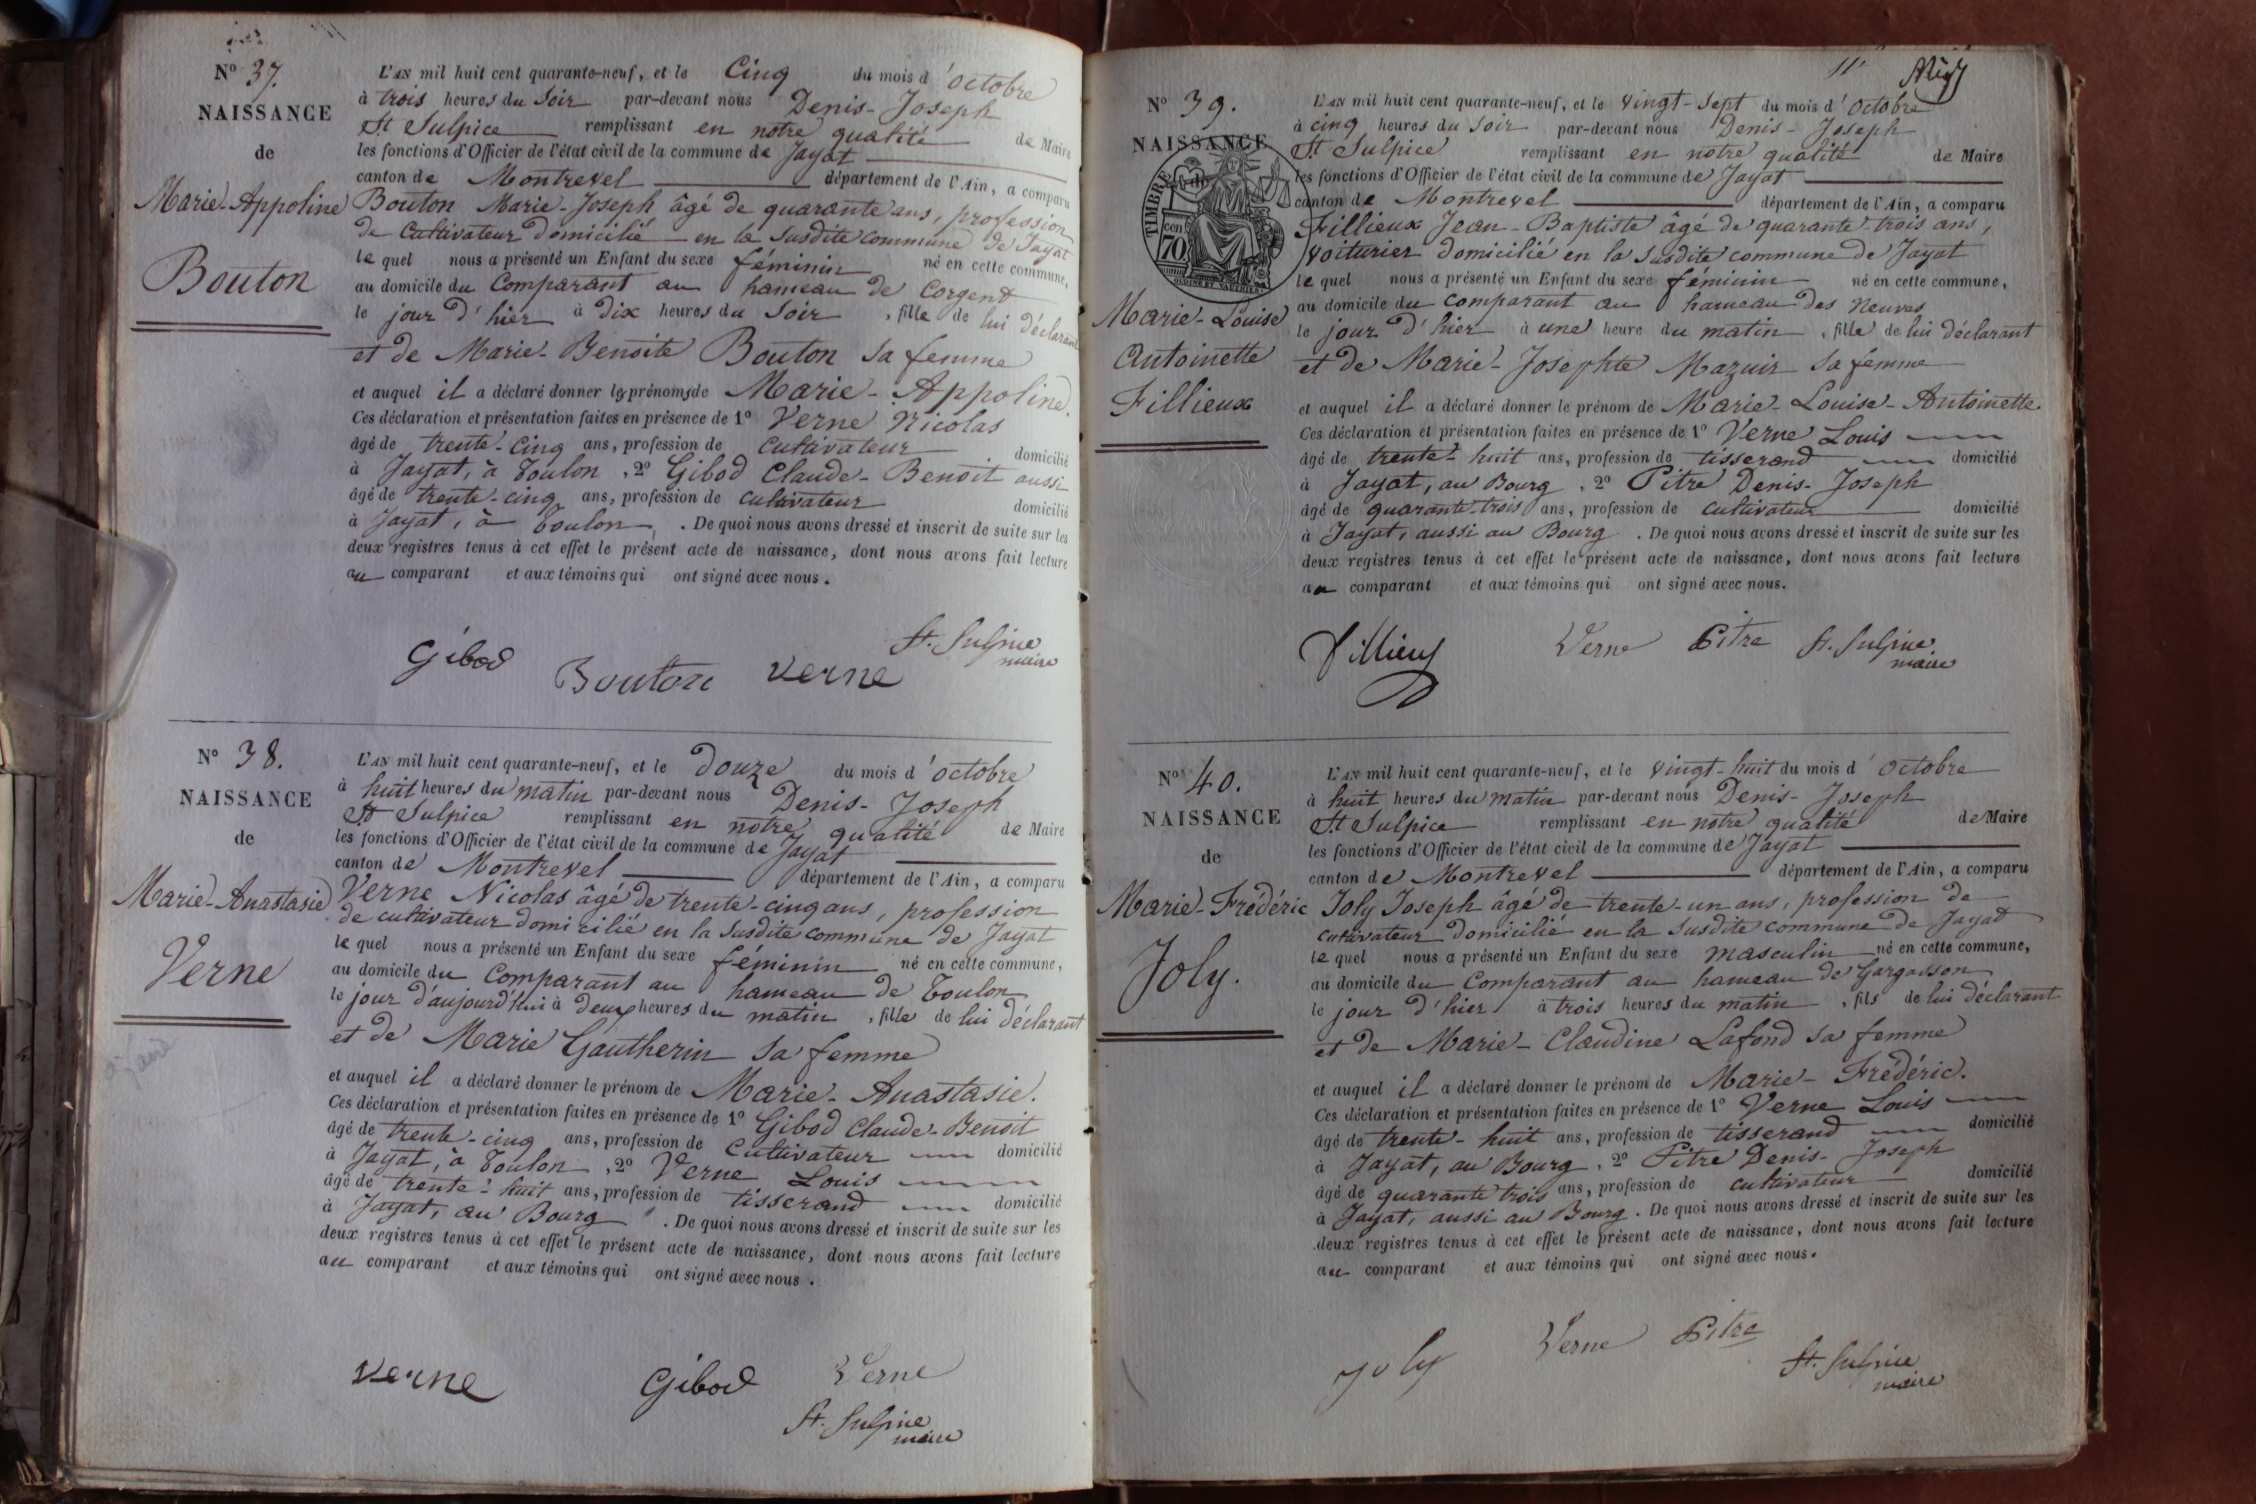 Nº 37.
NAISSANCE
de
Marie-Appoline
Bouton
L'AN mil huit cent quarante-neuf, et le Cinq du mois d'octobre
à trois heures du soir par-devant nous Denis-Joseph
St Sulpice remplissant en notre qualité de Maire
les fonctions d'Officier de l'état civil de la commune de Jayat
canton de Montrevel département de l'Ain, a comparu
Bouton Marie-Joseph âgé de quarante ans, profession
de Cultivateur domicilié en la susdite commune de Jayat
lequel nous a présenté un Enfant du sexe féminin né en cette commune,
au domicile du Comparant au hameau de Corgent
le jour d'hier à dix heures du soir, fille de lui déclarant
et de Marie-Benoite Bouton sa femme
et auquel il a déclaré donner les prénoms de Marie-Appoline.
Ces déclaration et présentation faites en présence de 1º Verne Nicolas
âgé de trente-cinq ans, profession de cultivateur domicilié
à Jayat, à Toulon, 2º Gibod Claude-Benoit aussi
âgé de trente-cinq ans, profession de cultivateur domicilié
à Jayat, à Toulon. De quoi nous avons dressé et inscrit de suite sur les
deux registres tenus à cet effet le présent acte de naissance, dont nous avons fait lecture
au comparant et aux témoins qui ont signé avec nous.
Gibod Bouton Verne St. Sulpice
maire
Nº 38.
NAISSANCE
de
Marie-Anastasie
Verne
L'AN mil huit cent quarante-neuf, et le douze du mois d'octobre
à huit heures du matin par-devant nous Denis-Joseph
St Sulpice remplissant en notre qualité de Maire
les fonctions d'Officier de l'état civil de la commune de Jayat
canton de Montrevel département de l'Ain, a comparu
Verne Nicolas âgé de trente-cinq ans, profession
de cultivateur domicilié en la susdite commune de Jayat
lequel nous a présenté un Enfant du sexe féminin né en cette commune,
au domicile du Comparant au hameau de Toulon
le jour d'aujourd'hui à deux heures du matin, fille de lui déclarant
et de Marie Gautherin sa femme
et auquel il a déclaré donner le prénom de Marie-Anastasie.
Ces déclaration et présentation faites en présence de 1º Gibod Claude-Benoit
âgé de trente-cinq ans, profession de Cultivateur domicilié
à Jayat, à Toulon, 2º Verne Louis
âgé de trente-huit ans, profession de tisserand domicilié
à Jayat, au Bourg. De quoi nous avons dressé et inscrit de suite sur les
deux registres tenus à cet effet le présent acte de naissance, dont nous avons fait lecture
au comparant et aux témoins qui ont signé avec nous.
Verne Gibod Verne
St. Sulpice
maire
11
Nº 39.
NAISSANCE
de
TIMBRE
70 cen
Marie-Louise
Antoinette
Fillieux
L'AN mil huit cent quarante-neuf, et le vingt-sept du mois d'octobre
à cinq heures du soir par-devant nous Denis-Joseph
St Sulpice remplissant en notre qualité de Maire
les fonctions d'Officier de l'état civil de la commune de Jayat
canton de Montrevel département de l'Ain, a comparu
Fillieux Jean-Baptiste âgé de quarante-trois ans,
voiturier domicilié en la susdite commune de Jayat
lequel nous a présenté un Enfant du sexe féminin né en cette commune,
au domicile du comparant au hameau des Neuves
le jour d'hier à une heure du matin, fille de lui déclarant
et de Marie-Josephte Mazuir sa femme
et auquel il a déclaré donner le prénom de Marie-Louise-Antoinette.
Ces déclaration et présentation faites en présence de 1º Verne Louis
âgé de trente-huit ans, profession de tisserand domicilié
à Jayat, au Bourg, 2º Pitre Denis-Joseph
âgé de quarante-trois ans, profession de cultivateur domicilié
à Jayat, aussi au Bourg. De quoi nous avons dressé et inscrit de suite sur les
deux registres tenus à cet effet le présent acte de naissance, dont nous avons fait lecture
au comparant et aux témoins qui ont signé avec nous.
Fillieux Verne Pitre St. Sulpice
maire
Nº 40.
NAISSANCE
de
Marie-Frédéric
Joly.
L'AN mil huit cent quarante-neuf, et le vingt-huit du mois d'octobre
à huit heures du matin par-devant nous Denis-Joseph
St Sulpice remplissant en notre qualité de Maire
les fonctions d'Officier de l'état civil de la commune de Jayat
canton de Montrevel département de l'Ain, a comparu
Joly Joseph âgé de trente-un ans, profession de
cultivateur domicilié en la susdite commune de Jayat
lequel nous a présenté un Enfant du sexe masculin né en cette commune,
au domicile du Comparant au hameau de Gargasson
le jour d'hier à trois heures du matin, fils de lui déclarant
et de Marie-Claudine Lafond sa femme
et auquel il a déclaré donner le prénom de Marie-Frédéric.
Ces déclaration et présentation faites en présence de 1º Verne Louis
âgé de trente-huit ans, profession de tisserand domicilié
à Jayat, au Bourg, 2º Pitre Denis-Joseph
âgé de quarante trois ans, profession de cultivateur domicilié
à Jayat, aussi au Bourg. De quoi nous avons dressé et inscrit de suite sur les
deux registres tenus à cet effet le présent acte de naissance, dont nous avons fait lecture
au comparant et aux témoins qui ont signé avec nous.
Joly Verne Pitre
St. Sulpice
maire